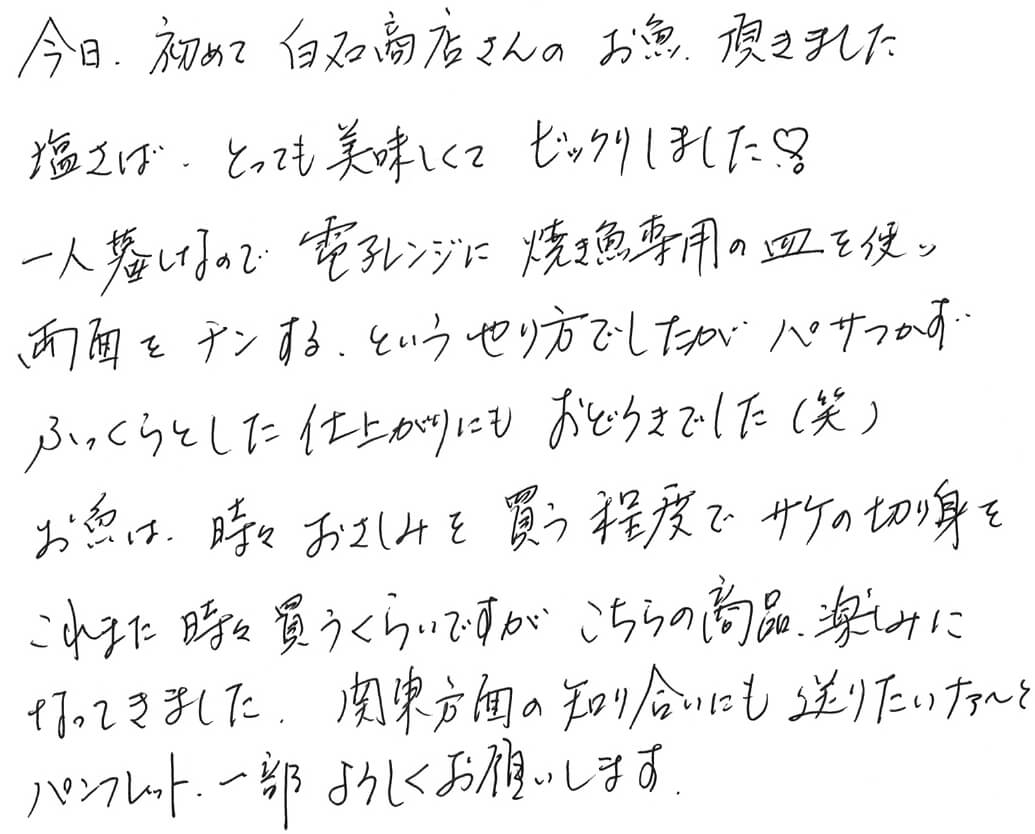 今日、初めて 白石商店さんの お魚、頂きました
塩さば、とっても美味しくて ビックリしました♡!
一人暮しなので 電子レンジに 焼き魚専用の皿を使い
両面を チンする、というやり方でしたが パサつかず
ふっくらとした仕上がりにも おどろきでした(笑)
お魚は、時々 おさしみを 買う程度で サケの切り身を
これまた 時々 買うくらいですが こちらの商品、楽しみに
なってきました、関東方面の知り合いにも 送りたいナァ〜と
パンフレット、一部 よろしくお願いします、